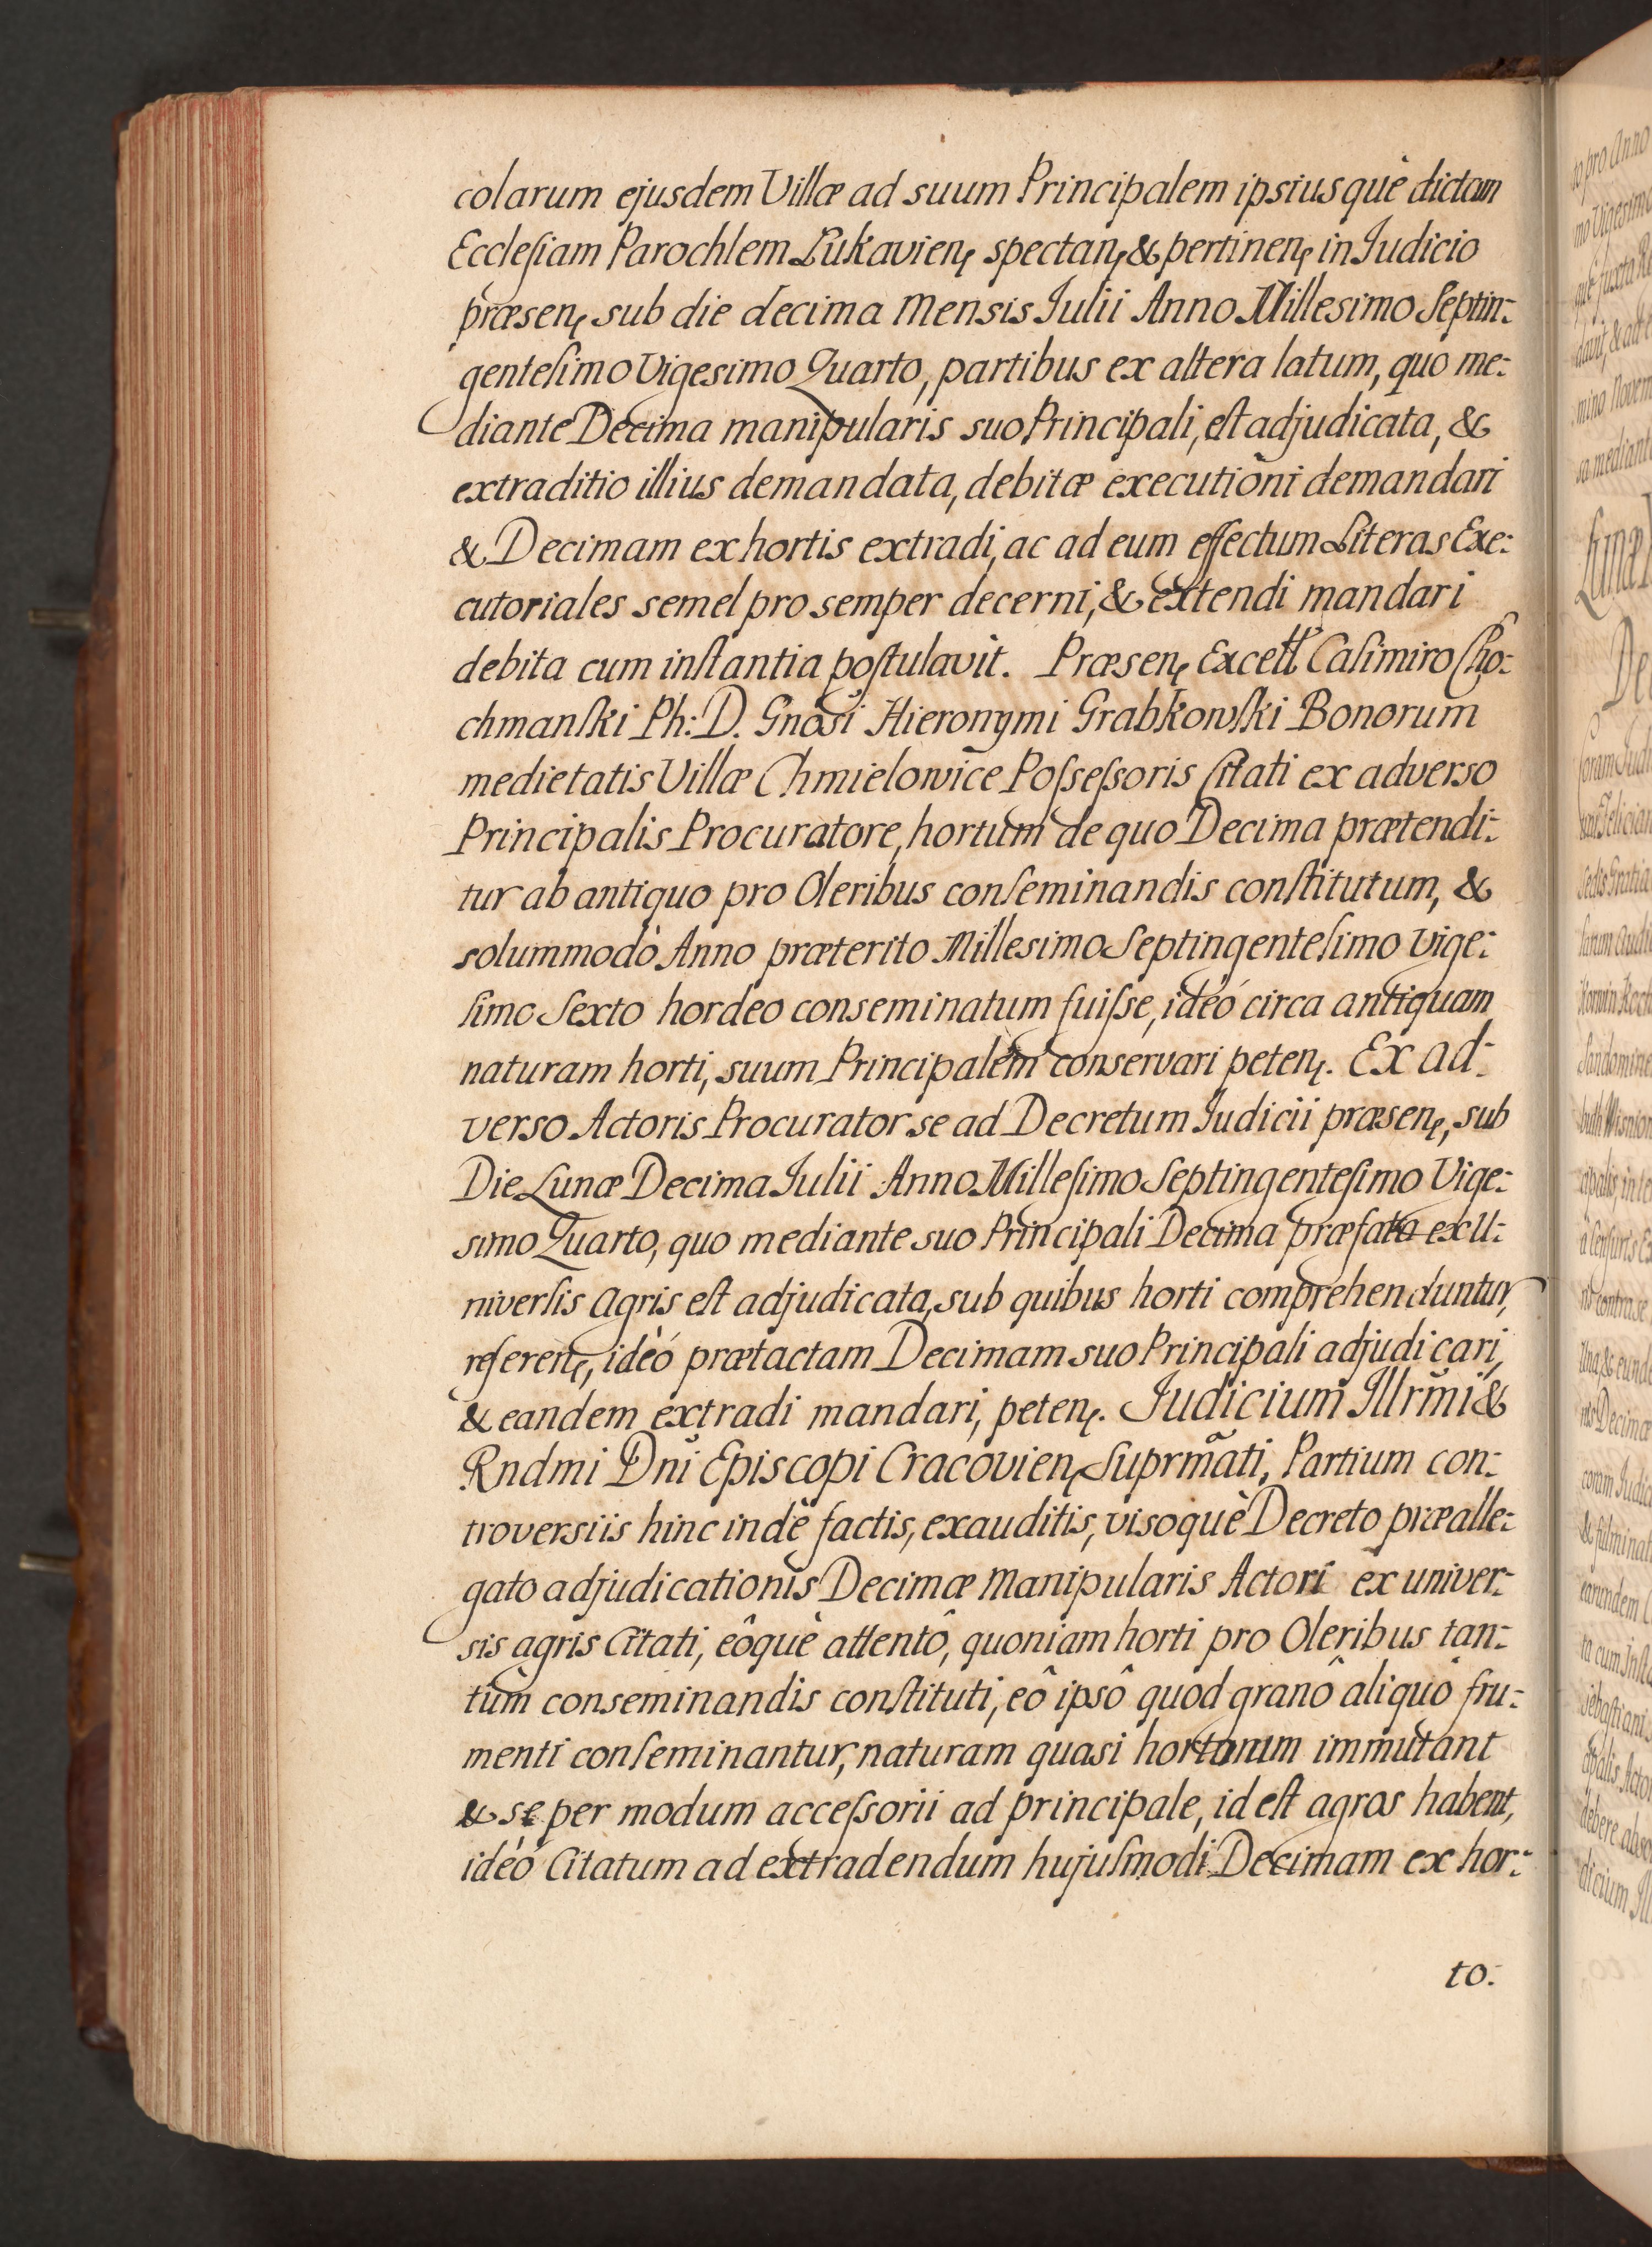 colarum ejusdem Villæ ad suum Principalem ipsiusquè dictam
Ecclesiam Parochlem Lukavien, spectan, & pertinen, in Iudicio
præsen, sub die decima Mensis Iulii Anno Millesimo Septin:
gentesimo Vigesimo Quarto, partibus ex altera latum, quo me:
diante Decima manipularis suo Principali, est adjudicata, &
extraditio illius demandata, debitæ executioni demandari
& Decimam ex hortis extradi, ac ad eum effectum Literas Exe:
cutoriales semel pro semper decerni, & extendi mandari
debita cum instantia postulavit. Præsen, Excell Casimiro Cho:
chmanski Ph: D. Gnosi Hieronymi Grabkowski Bonorum
medietatis Villæ Chmielowice Possessoris Citati ex adverso
Principalis Procuratore, hortum de quo Decima prætendi:
tur ab antiquo pro Oleribus conseminandis constitutum, &
solummodò Anno præterito Millesimo Septingentesimo Vige:
simo Sexto hordeo conseminatum fuisse, ideó circa antiquam
naturam horti, suum Principalem conservari peten,. Ex ad:
verso Actoris Procurator se ad Decretum Iudicii præsen, sub
Die Lunæ Decima Iulii Anno Millesimo Septingentesimo Vige:
simo Quarto, quo mediante suo Principali Decima præfata ex U:
niversis Agris est adjudicata, sub quibus horti comprehenduntur,
referen, ideó prætactam Decimam suo Principali adjudicari,
& eandem extradi mandari, peten,. Judicium Illrmi &
Rndmi Dni Episcopi Cracovien, Suprmãti, Partium con:
troversiis hinc inde factis, exauditis, visoquè Decreto præalle:
gato adjudicationis Decimæ Manipularis Actori ex univer:
sis agris Citati, eôquè attentô, quoniam horti pro Oleribus tan:
tùm conseminandis constituti, eô ipsô quod granô aliquô fru:
menti conseminantur, naturam quasi hortorum immutant
& se per modum accessorii ad principale, id est agros habent,
ideó Citatum ad extradendum hujusmodi Decimam ex hor:
to: